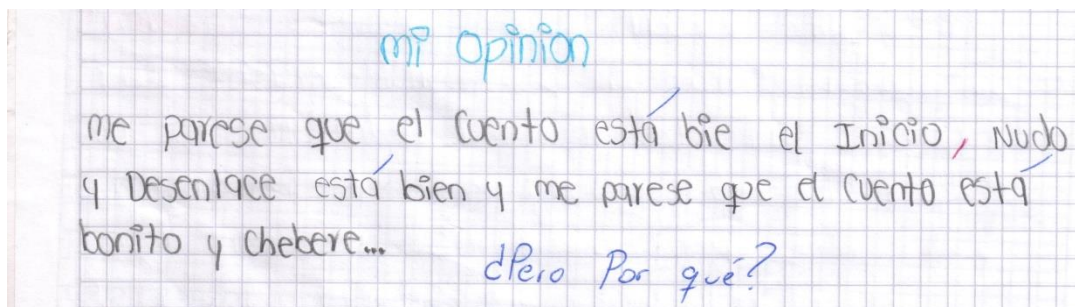 mi opinion
me parese que el cuento está bie el Inicio, Nudo
y Desenlace está bien y me parese que el cuento está
bonito y chebere...
¿Pero Por qué?